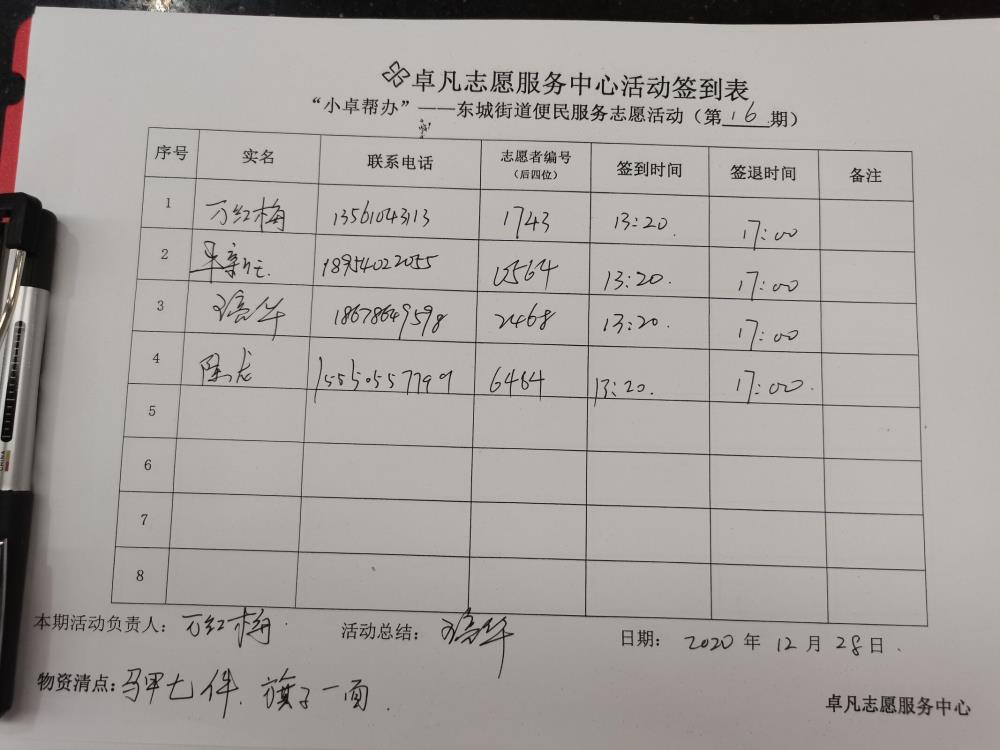 卓凡志愿服务中心活动签到表
“小卓帮办”——东城街道便民服务志愿活动（第16期）
序号 实名 联系电话 志愿者编号（后四位） 签到时间 签退时间 备注
1 万红梅 13561043113 1743 13:20. 17:00
2 18954022055 13:20. 17:00
3 18678649598 2468 13:20. 17:00
4 陈龙 15550557799 6464 13:20. 17:00.
5
6
7
8
本期活动负责人：万红梅. 活动总结： 日期：2020年12月28日.
物资清点：马甲七件、旗子一面.
卓凡志愿服务中心
CHINA